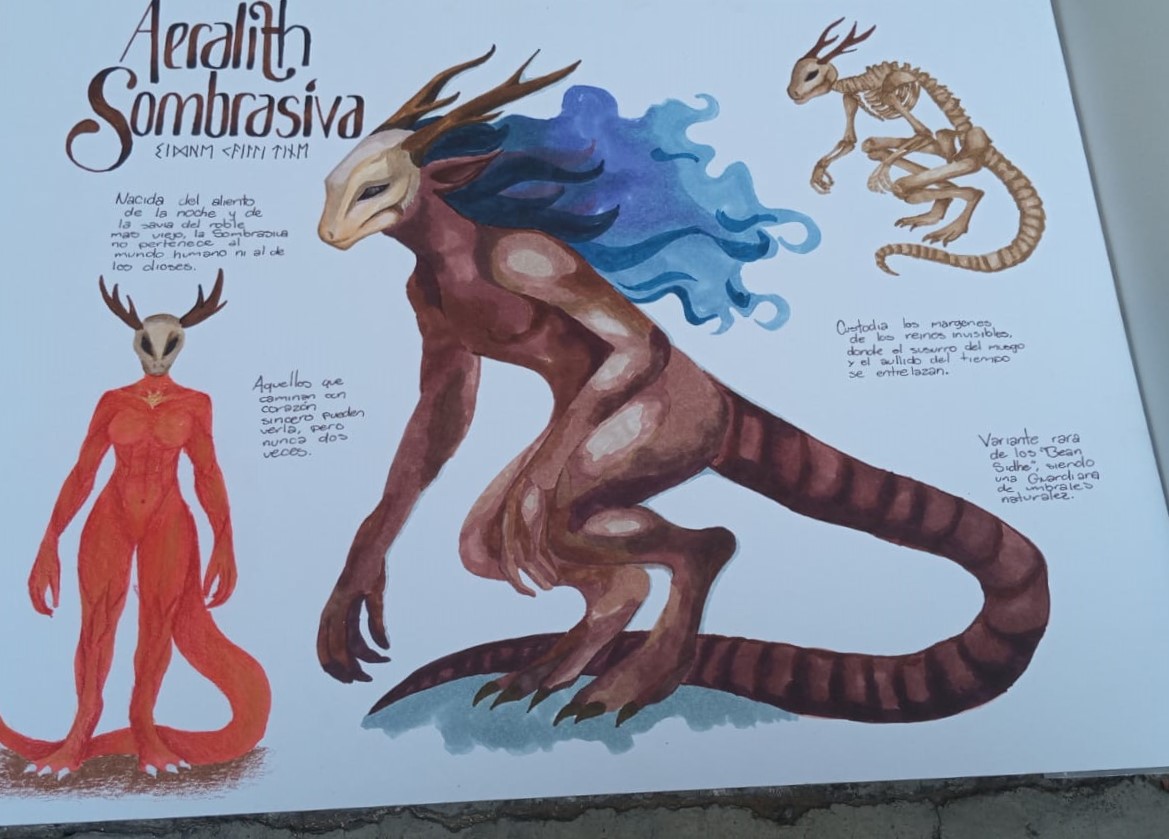 Aeralith
Sombrasiva
Nacida del aliento
de la noche y de
la savia del roble
mas viejo, la Sombrasiva
no pertenece al
mundo humano ni al de
los dioses.
Aquellos que
caminan con
corazón
sincero pueden
verla, pero
nunca dos
veces.
Custodia los margenes
de los reinos invisibles,
donde el susurro del musgo
y el aullido del tiempo
se entrelazan.
Variante rara
de los "Bean
Sidhe", siendo
una Guardiana
de umbrales
naturalez.